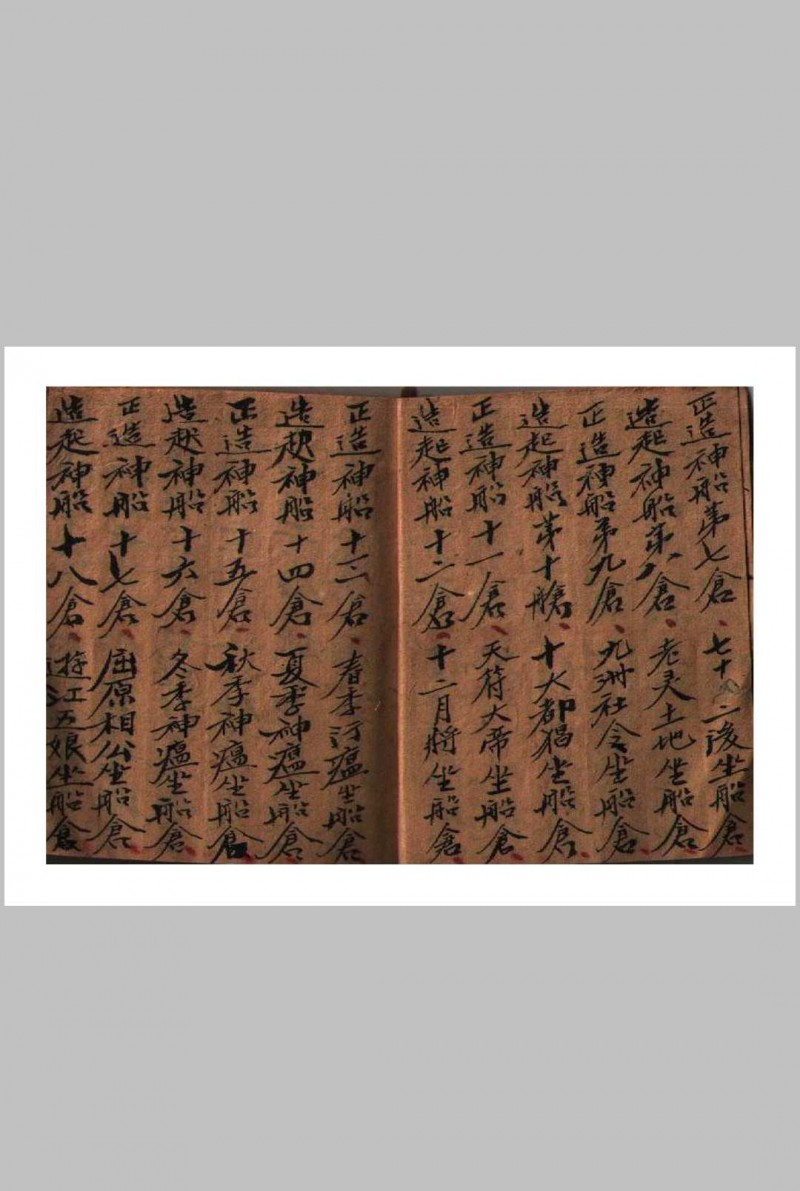 正造神船第七倉 七十二後坐船倉
造起神船第八倉 老灵土地坐船倉
正造神船第九倉 九洲社令坐船倉
造起神船第十艙 十大都猖坐船倉
正造神船十一倉 天符大帝坐船倉
造起神船十二倉 十二月將坐船倉
正造神船十三倉 春季行瘟坐船倉
造起神船十四倉 夏季神瘟坐船倉
正造神船十五倉 秋季神瘟坐船倉
造起神船十六倉 冬季神瘟坐船倉
正造神船十七倉 屈原相公坐船倉
造起神船十八倉 遊江五娘坐船倉